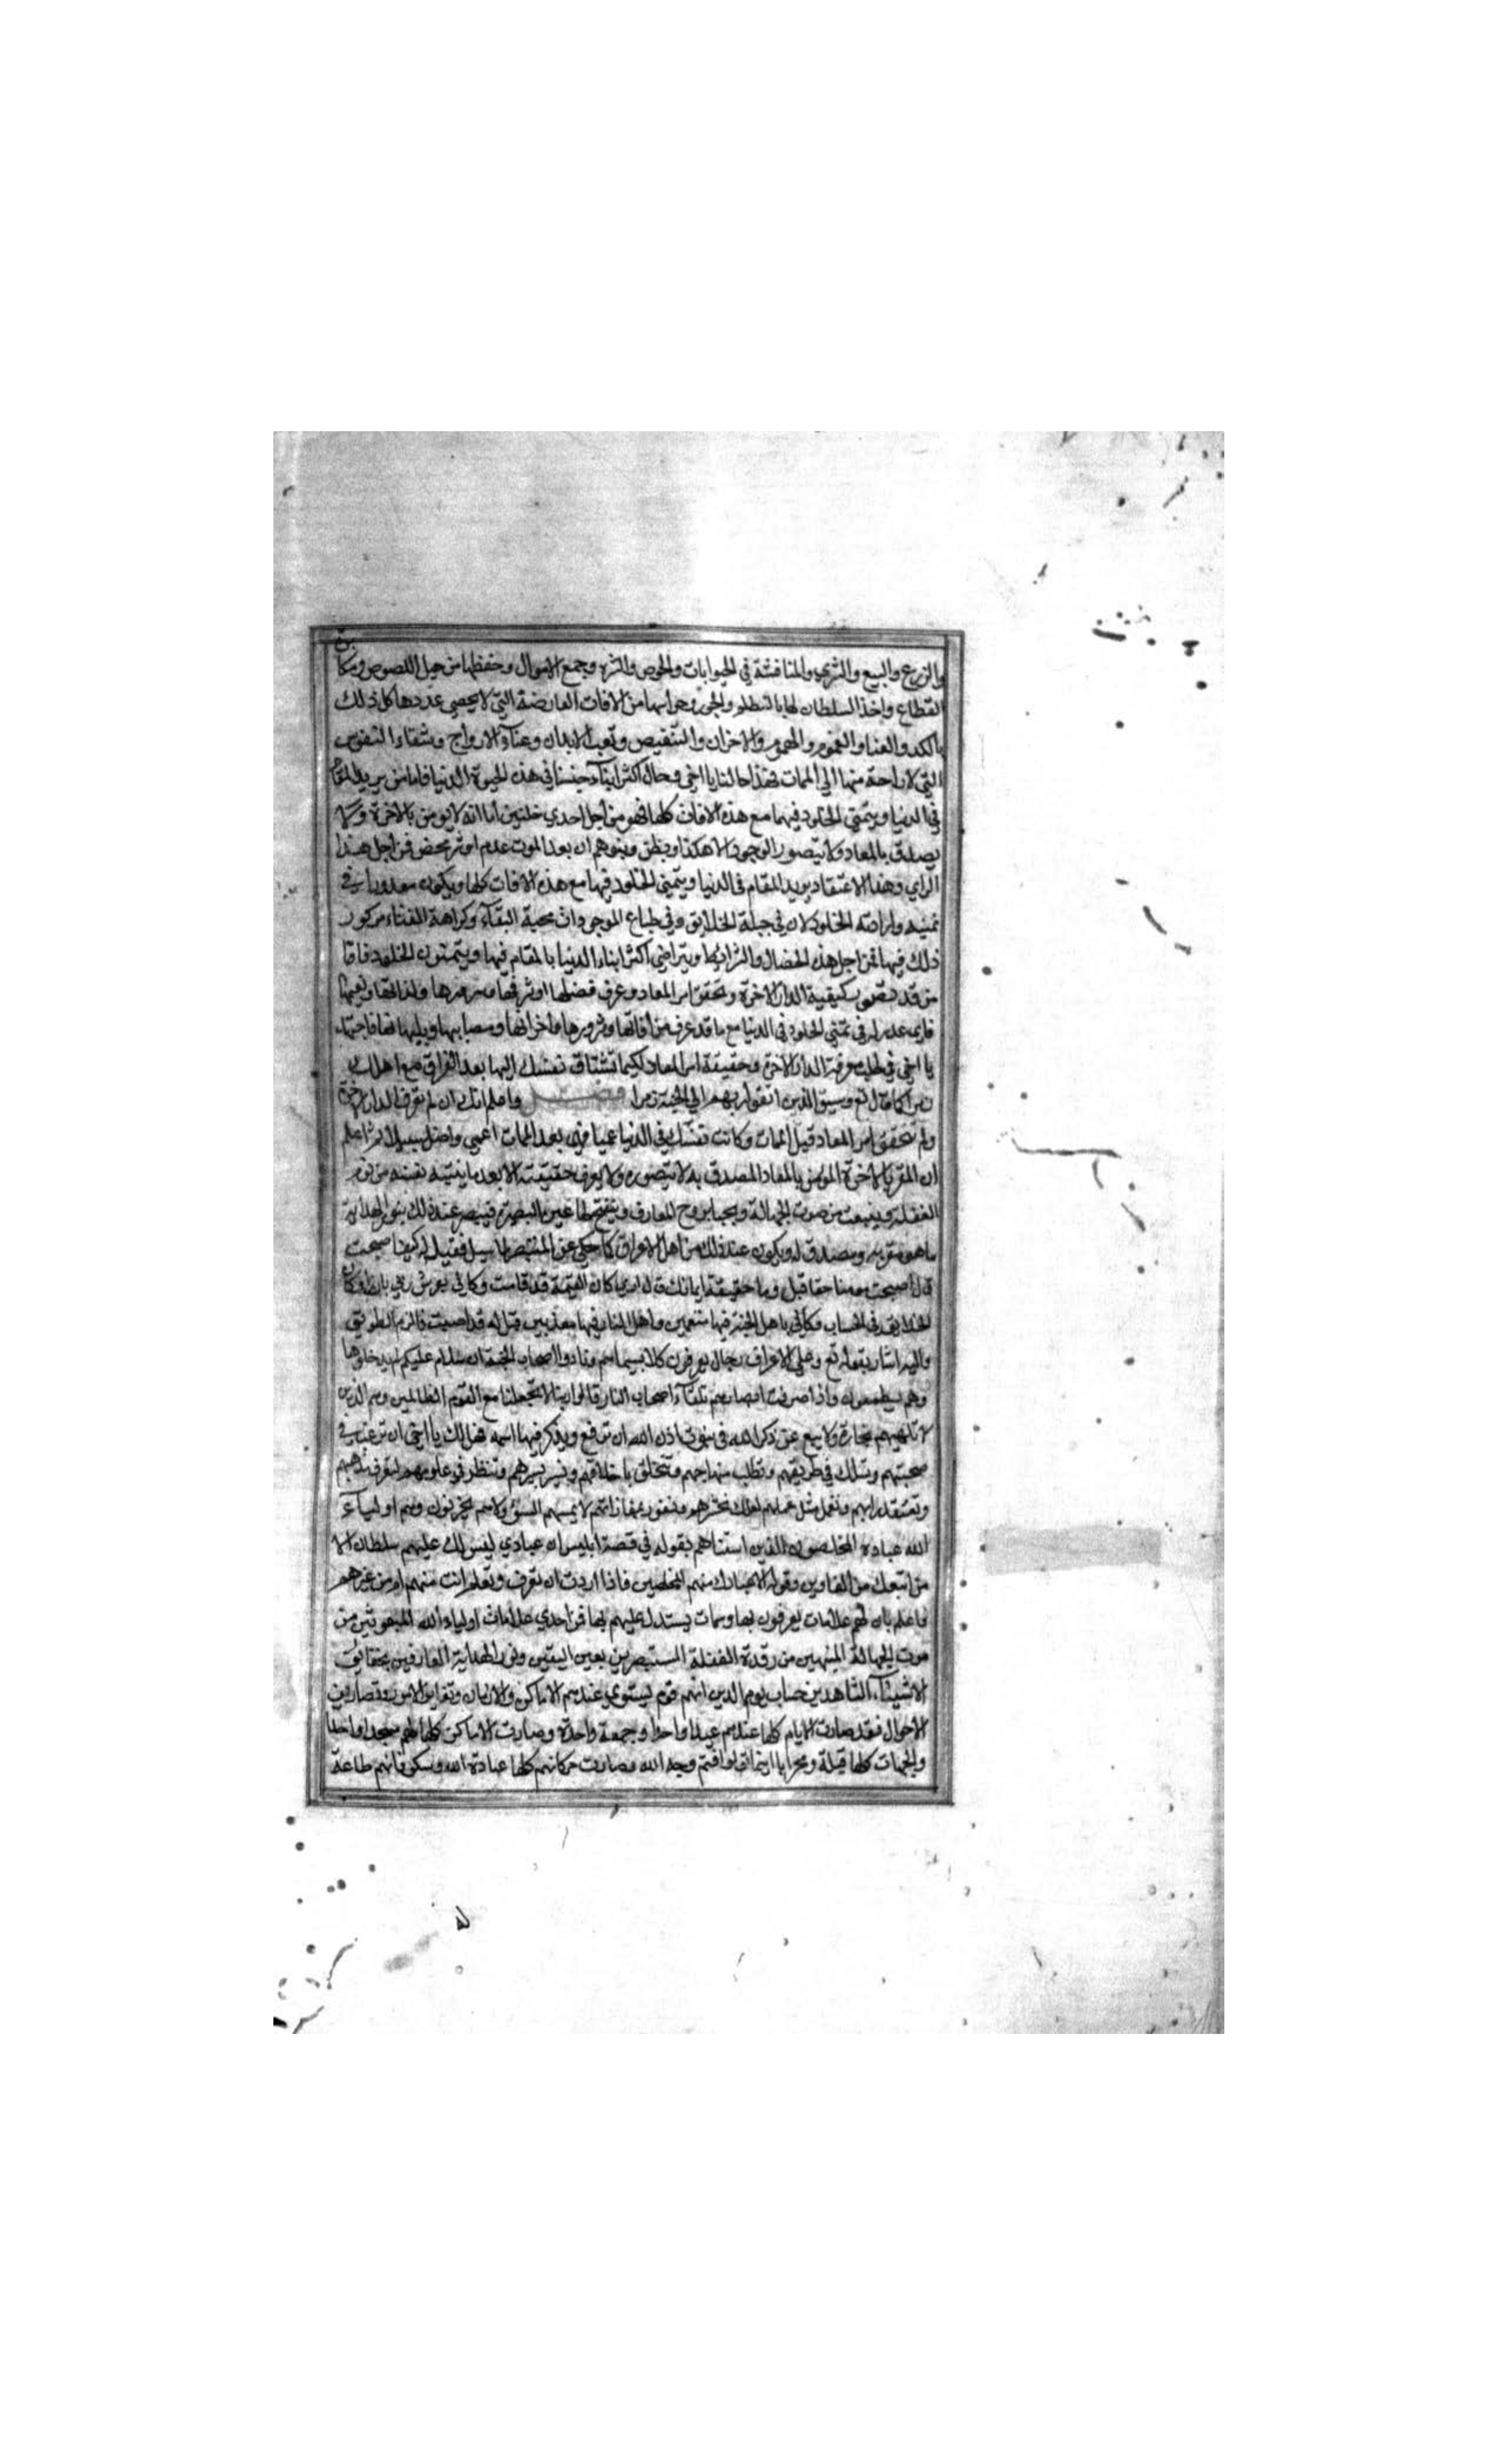 والزرع والبيع والشرى والمنافسة في الحيوانات والحرص والشره وجمع الاموال وحفظها من حيل اللصوص ومكابق
القطاع واخذ السلطان لها بالتظلم والجور وحراستها من الافات العارضة التي لا يحصي عددها كل ذلك
بالكد والعنا والغموم والهموم والاحزان والتنقيص وتعب الابدان وعناء الارواح وشقاء النفوس
التي لا راحة منها الي الممات فهذا حالنا يا اخي وحال اكثر ابناء جنسنا في هذه الحيوة الدنيا فاما من يريد المقام
في الدنيا ويتمني الخلود فيها مع هذه الافات كلها فهو من اجل احدي خلتين اما انه لا يومن بالاخرة ولا
يصدق بالمعاد ولا يتصور الوجود الا هكذا ويظن ويتوهم ان بعد الموت عدم او شر محض فمن اجل هذا
الراي وهذا الاعتقاد يريد المقام في الدنيا ويتمني الخلود فيها مع هذه الافات كلها ويكون معذورا في
تمنيه وارادته الخلود لان في جبلة الخلايق وفي طباع الموجودات محبة البقاء وكراهة الفناء مركور
ذلك فيها فمن اجل هذه الخصال والشرايط يتراضي اكثر ابناء الدنيا بالمقام فيها ويتمنون الخلود فاما
من قد تصور كيفية الدار الاخرة وتحقق امر المعاد وعرف فضلها وشرفها وسرورها ولذاتها ونعيمها
فاي عذر له في تمني الخلود في الدنيا مع ما قد عرف من افاتها وشرورها واحزانها ومصايبها وبلياتها فاجتهد
يا اخي في طلب معرفة الدار الاخرة وحقيقة امر المعاد لكيما تشتاق نفسك اليها بعد الفراق مع اهلك
زمرا كما قال تع وسيق الذين اتقوا ربهم الي الجنة زمرا فصل واعلم انك ان لم تعرف الدار الاخرة
ولم تتحقق امر المعاد قبل الممات وكانت نفسك في الدنيا عميا فهي بعد الممات اعمي واضل سبيلا ثم اعلم
ان المقر بالاخرة المومن بالمعاد المصدق به لا يتصوره ولا يعرف حقيقته الا بعد ما ينتبه نفسه من نوم
الغفلة وينبعث من موت الجهالة ويحيا بروح المعارف وينفتح لها عين البصيرة فيبصر عند ذلك بنور الهداية
ما هو مقر به ومصدق له ويكون عند ذلك من اهل الاعراف كما حكي عن المستبصر لما سيل فقيل له كيف اصبحت
قال اصبحت مومنا حقا قيل وما حقيقة ايمانك قال اري كان القيمة قد قامت وكاني بعرش ربي بارزا وكان
الخلايق في الحساب وكاني باهل الجنة فيها منعمين واهل النار فيها معذبين فقيل له قد اصبت فالزم الطريق
واليه اشار بقوله تع وعلي الاعراف رجال يعرفون كلا بسيماهم ونادوا اصحاب الجنة ان سلام عليكم لم يدخلوها
وهم يطمعون واذا صرفت ابصارهم تلقاء اصحاب النار قالوا ربنا لا تجعلنا مع القوم الظالمين وهم الذين
لا تلهيهم تجارة ولا بيع عن ذكر الله في بيوت اذن الله ان ترفع ويذكر فيها اسمه فهل لك يا اخي ان ترغب في
صحبتهم وتسلك في طريقهم وتطلب منهاجهم وتتخلق باخلاقهم وتسير بسيرهم وتنظر في علومهم لتعرف مذاهبهم
وتعتقد رايهم وتعمل مثل عملهم لعلك تحشر معهم وتفوز بمفازاتهم لا يمسهم السوء ولا هم يحزنون وهم اولياء
الله عباده المخلصون الذين استثناهم بقوله في قصة ابليس ان عبادي ليس لك عليهم سلطان الا
من اتبعك من الغاوين وقوله الا عبادك منهم المخلصين فاذا اردت ان تعرف وتعلم انت منهم او من غيرهم
فاعلم بان لهم علامات يعرفون بها وسمات يستدل عليهم بها فمن احدي علامات اولياء الله المبعوثين من
موت الجهالة المنتبهين من رقدة الغفلة المستبصرين بعين اليقين ونور الهداية العارفين بحقائق
الاشياء الشاهدين حساب يوم الدين انهم قوم يستوي عندهم الاماكن والازمان وتغاير الامور وتصاريف
الاحوال فقد صارت الايام كلها عندهم عيدا واحدا وجمعة واحدة وصارت الاماكن كلها لهم مسجدا واحدا
والجهات كلها قبلة ومحرابا اينما تولوا فثم وجه الله وصارت حركاتهم كلها عبادة الله وسكوناتهم طاعة
له